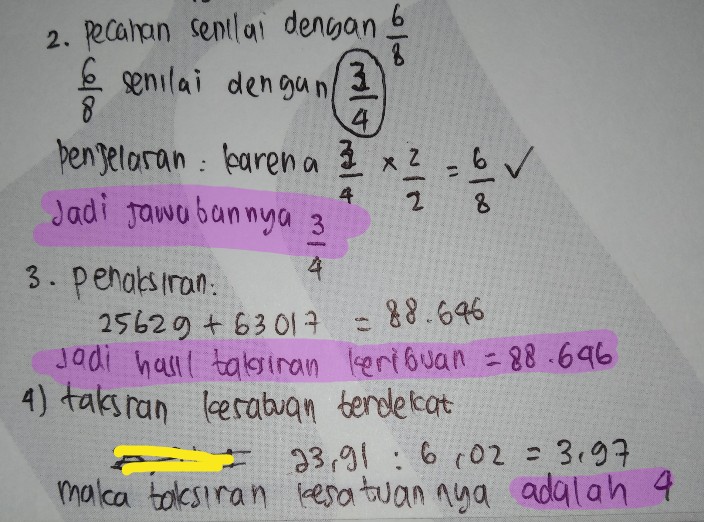 2. pecahan senilai dengan 6/8
6/8 senilai dengan 3/4
penjelasan : karena 3/4 x 2/2 = 6/8 ✓
Jadi jawabannya 3/4
3. penaksiran:
25629 + 63017 = 88.646
Jadi hasil taksiran keribuan = 88.646
4) taksran kesatuan terdekat
23,91 : 6,02 = 3,97
maka taksiran kesatuannya adalah 4